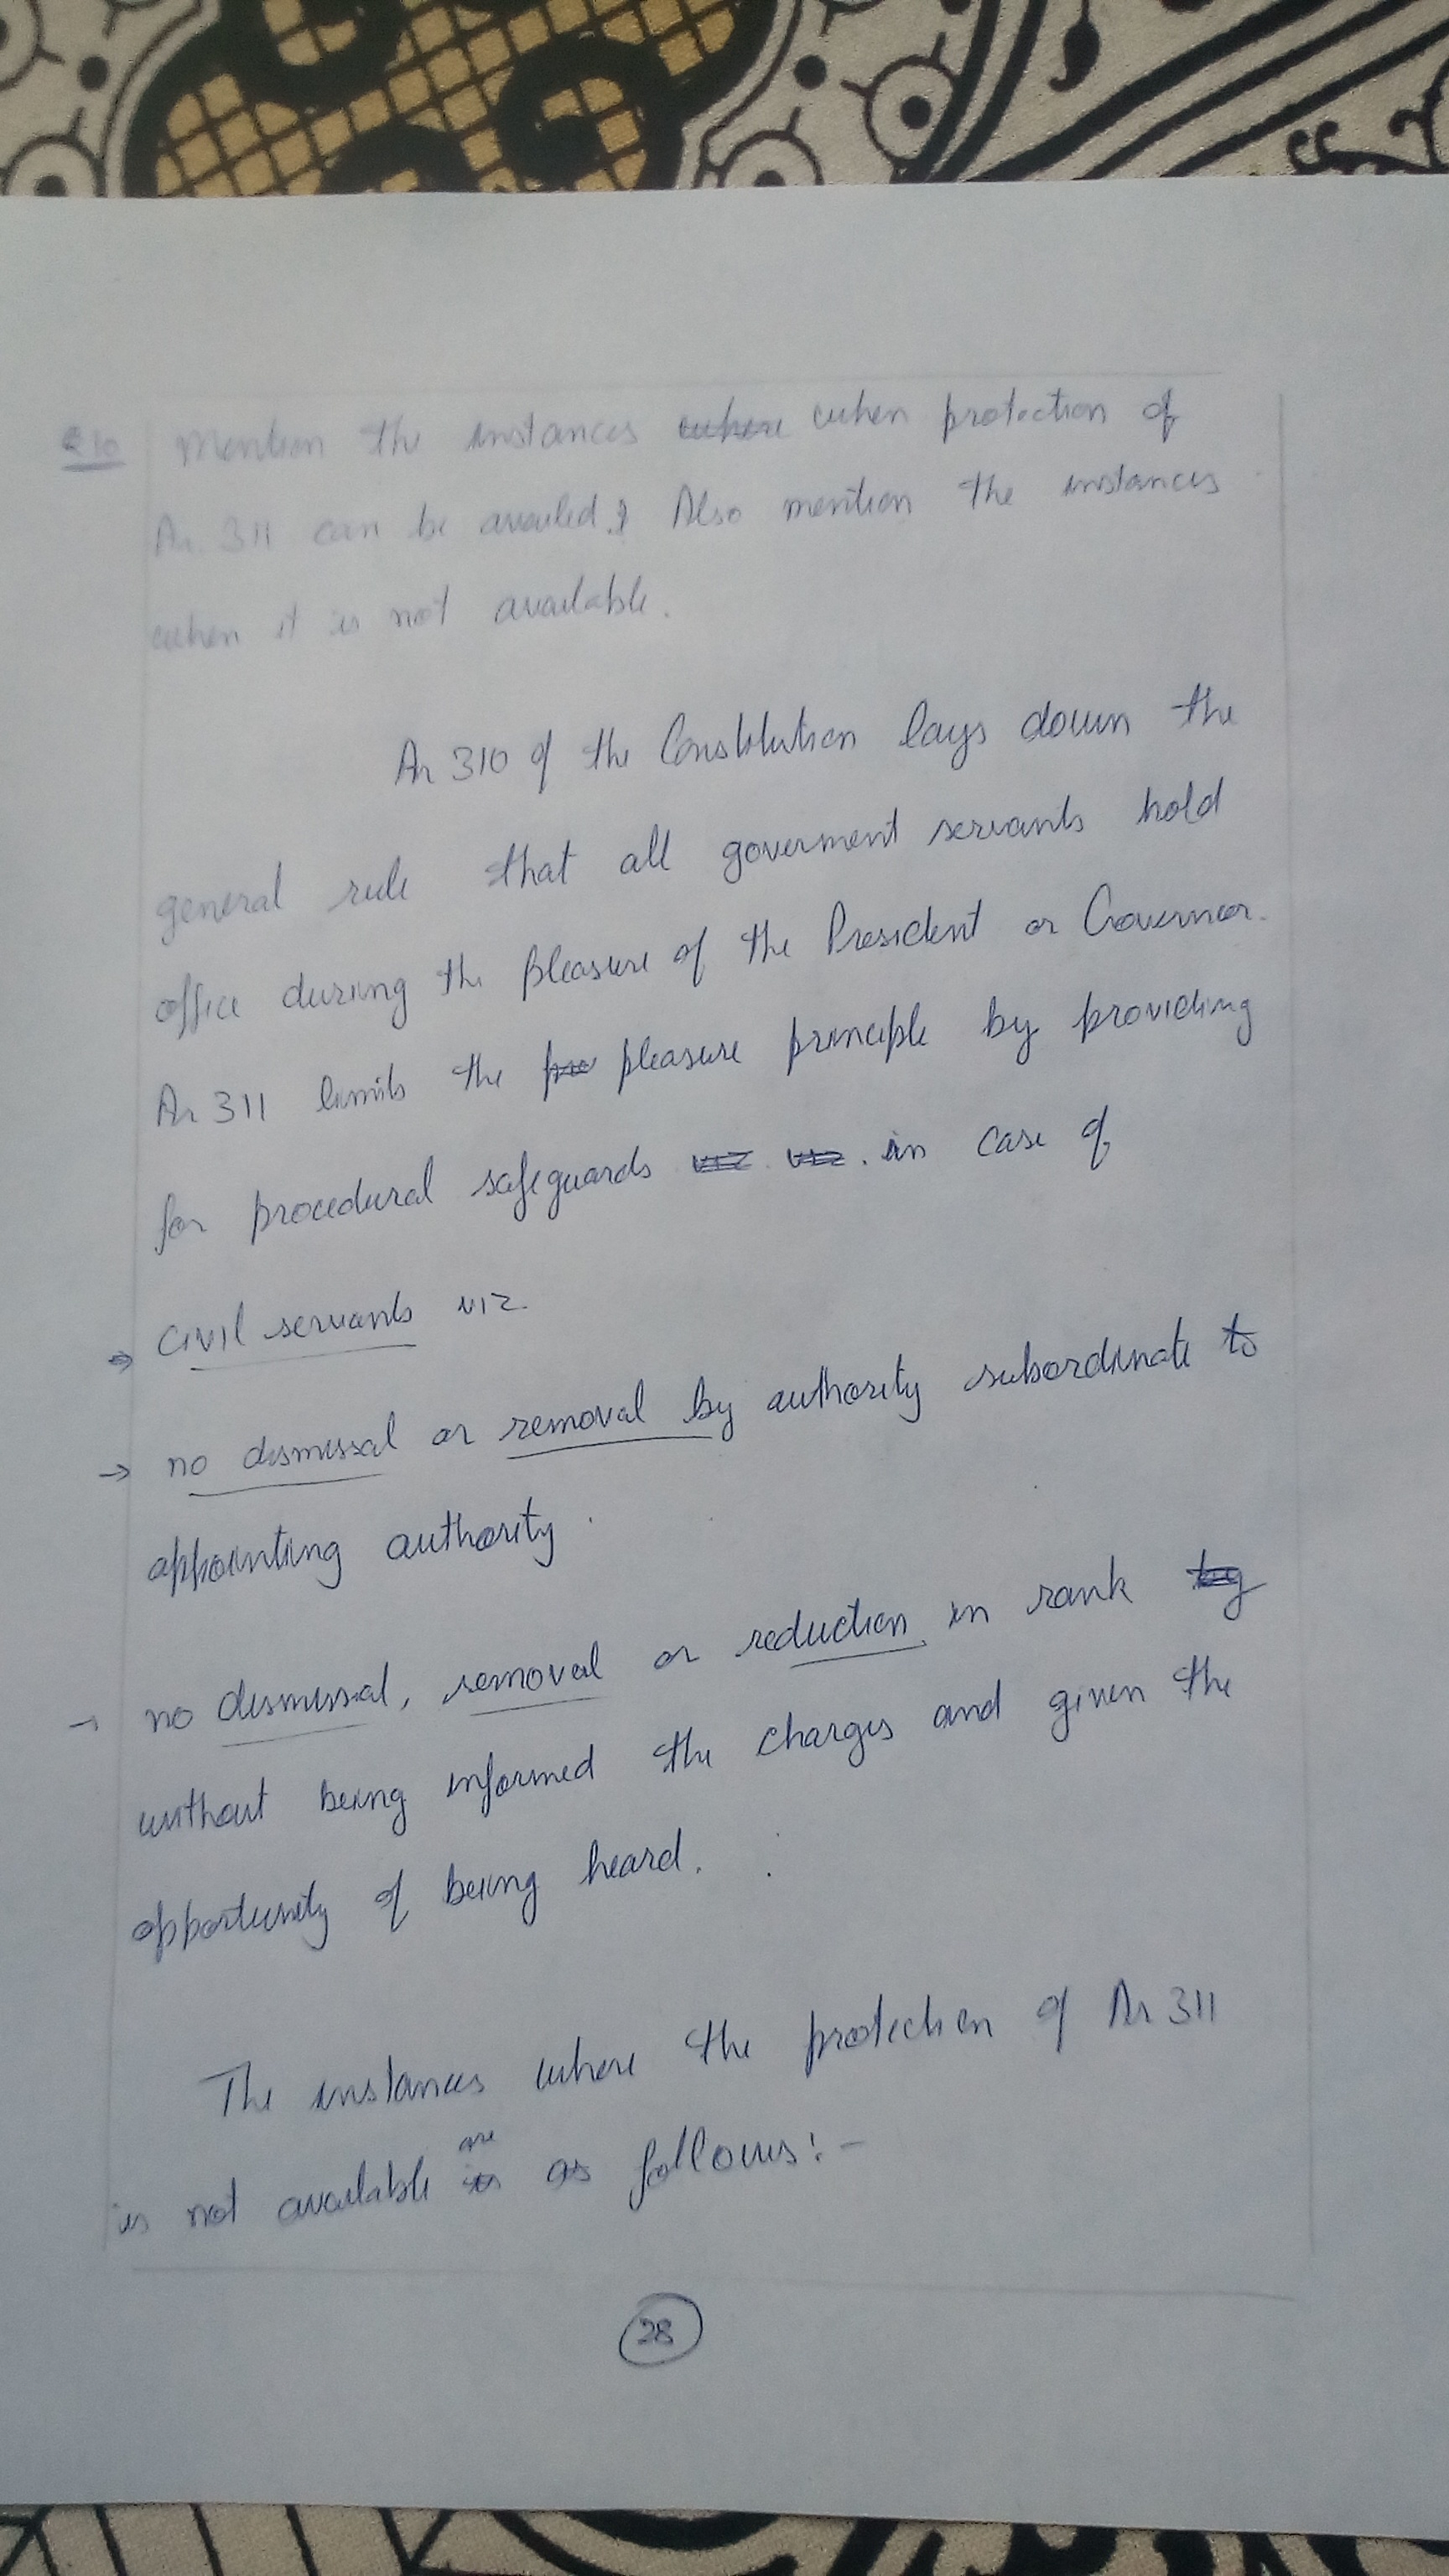 Q10 Mention the instances where when protection of
Ar. 311 can be availed? Also mention the instances
when it is not available.
Ar 310 of the Constitution lays down the
general rule that all goverment servants hold
office during the pleasure of the President or Governor.
Ar 311 limits the pleasure principle by providing
for procedural safeguards viz. viz. in case of
⇒ civil servants viz.
→ no dismissal or removal by authority subordinate to
appointing authority.
→ no dismissal, removal or reduction in rank by
without being informed the charges and given the
opportunity of being heard.
The instances where the protection of Ar 311
are
is not available is as follows:-
28